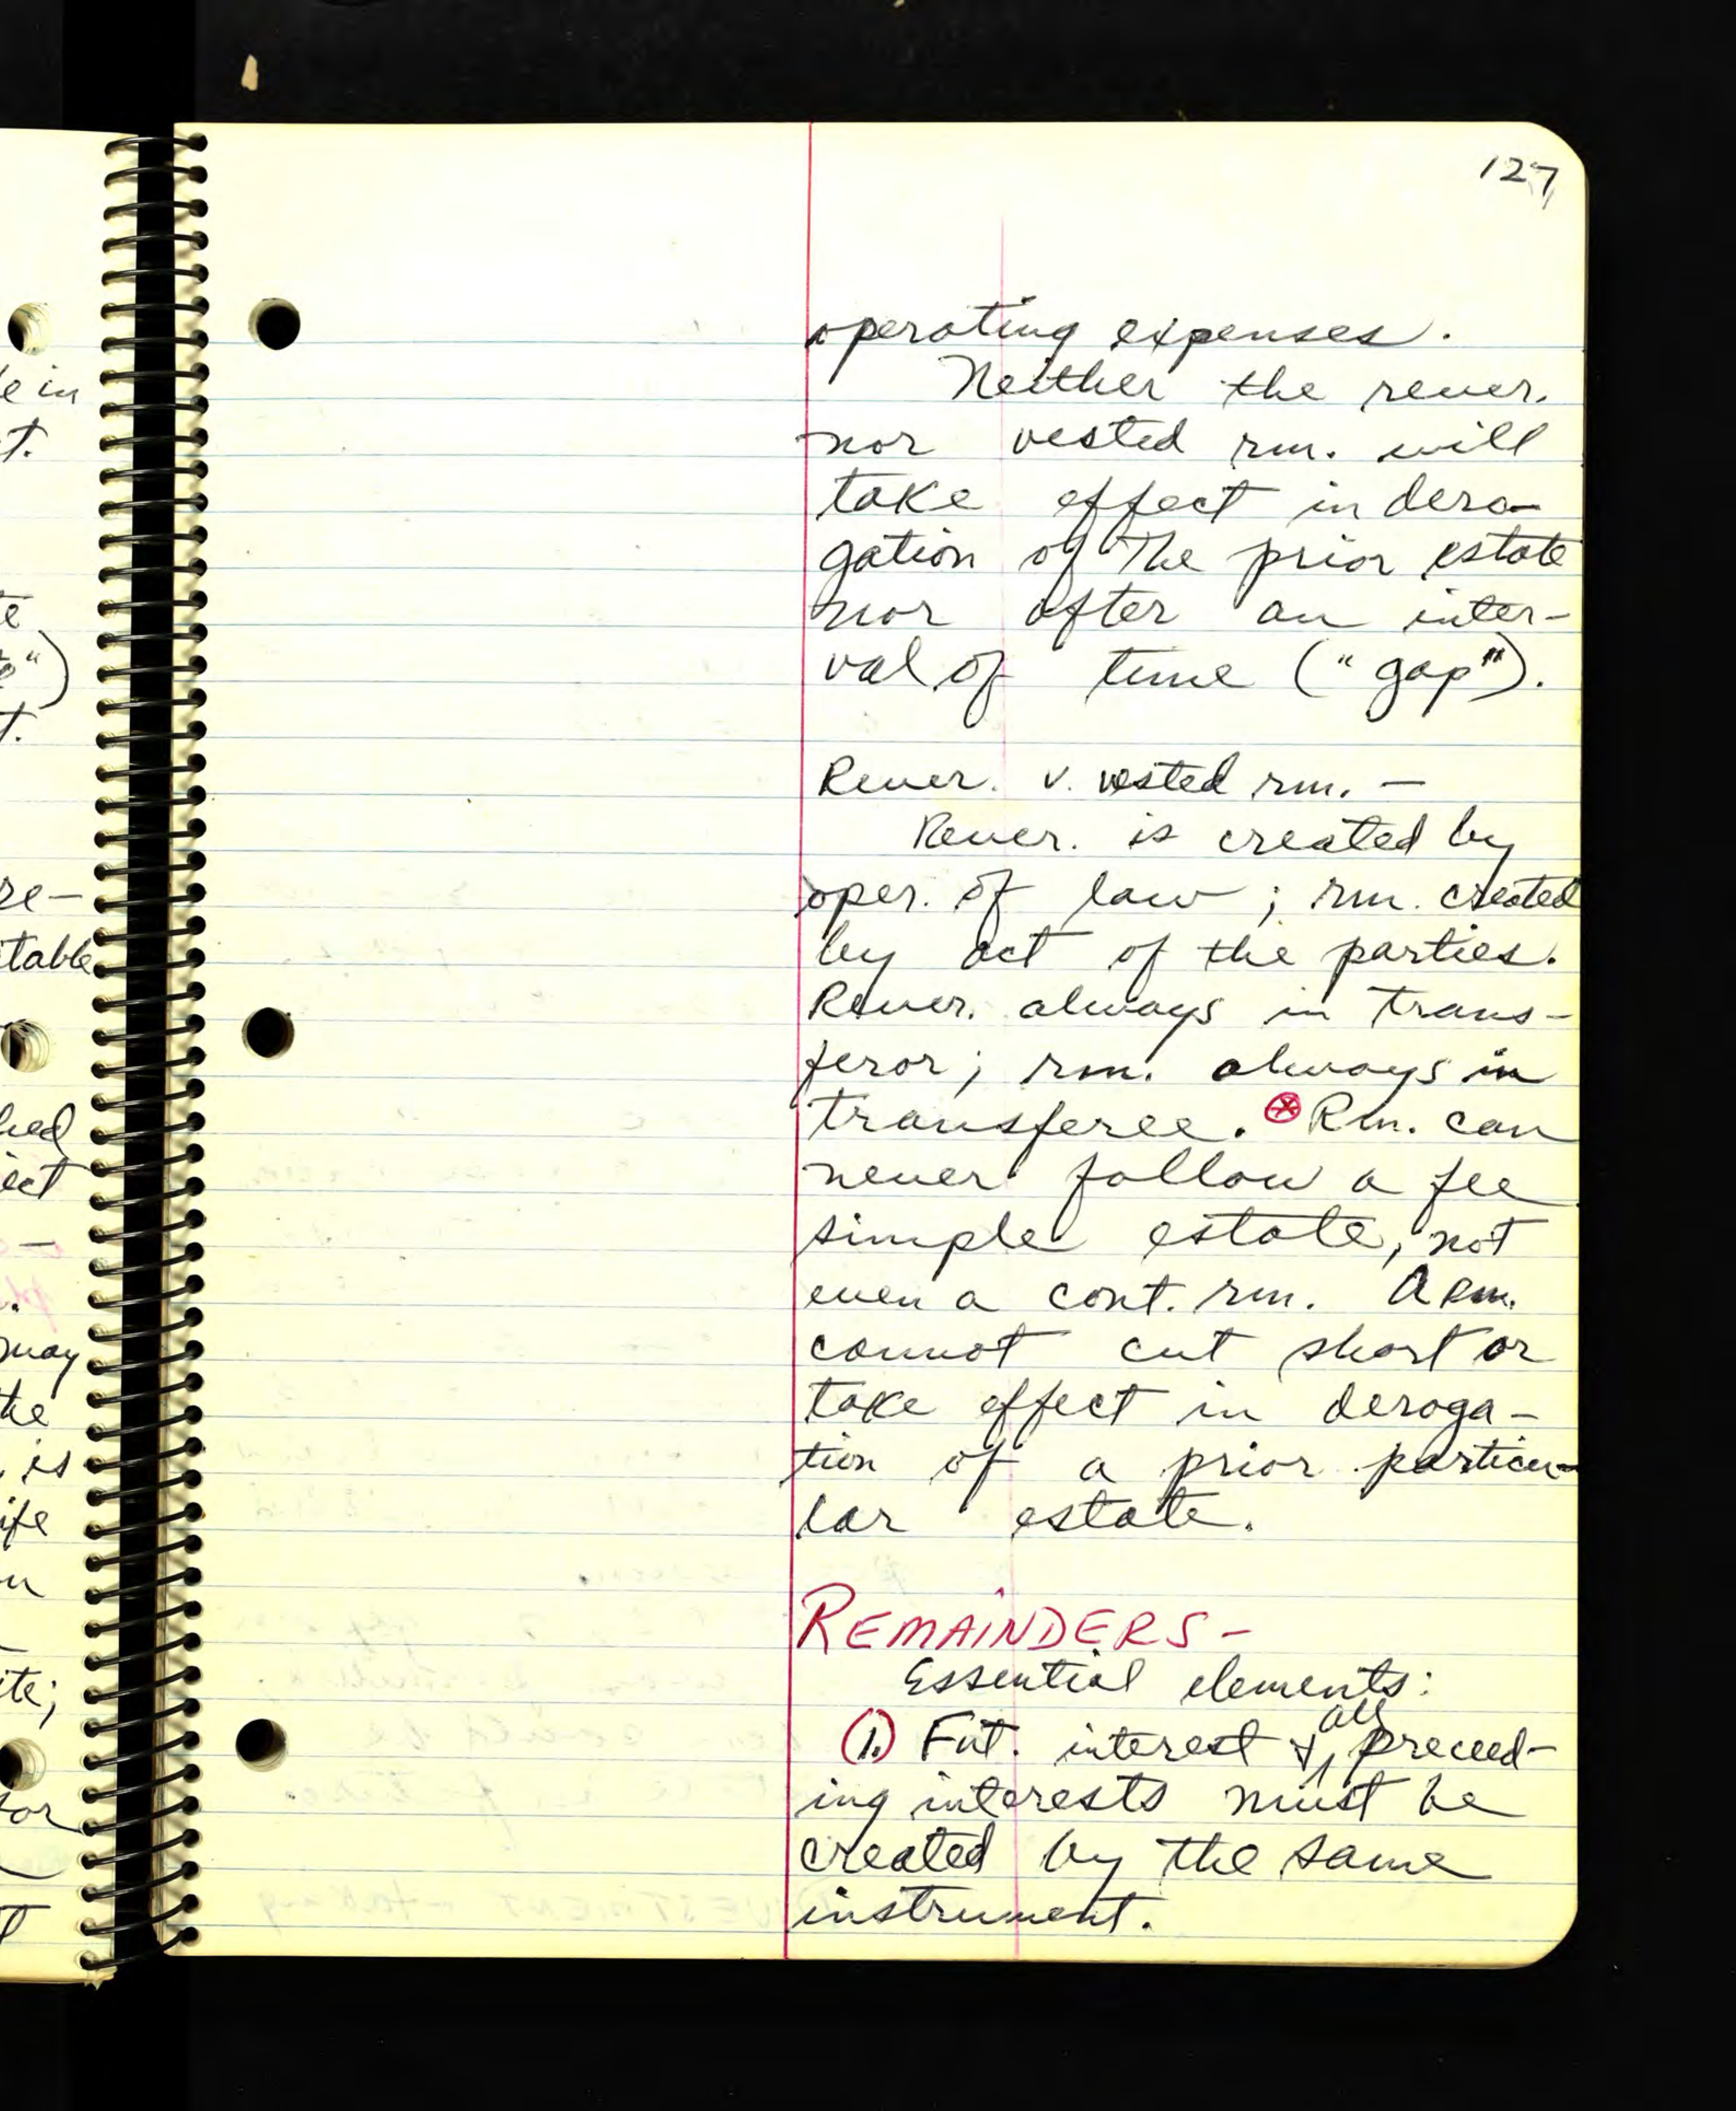 127
operating expenses.
Neither the rever.
nor vested rm. will
take effect in dero-
gation of the prior estate
nor after an inter-
val of time ("gap").
Rever. v. vested rm. —
Rever. is created by
oper. of law; rm. created
by act of the parties.
Rever. always in trans-
feror; rm. always in
transferee. ⊗ Rm. can
never follow a fee
simple estate, not
even a cont. rm. A Rm.
cannot cut short or
take effect in deroga-
tion of a prior particu-
lar estate.
REMAINDERS -
Essential elements:
(1.) Fut. interest & all preceed-
ing interests must be
created by the same
instrument.